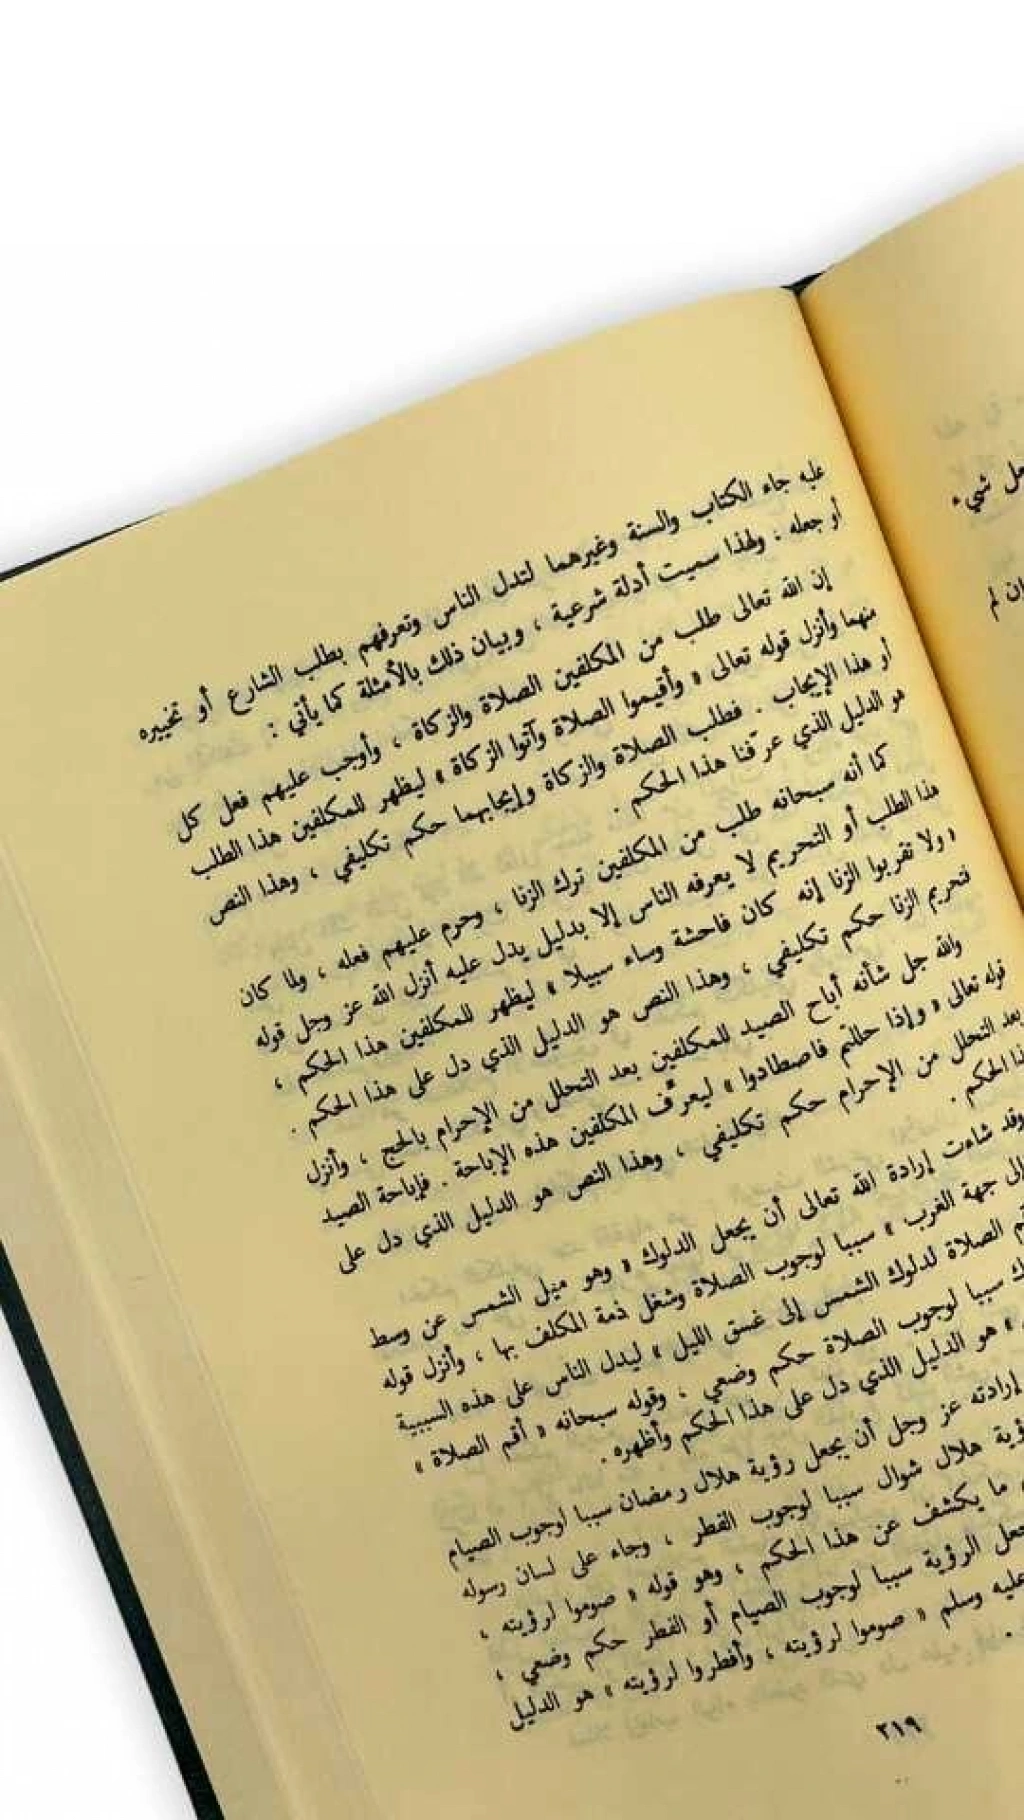 عليه جاء الكتاب والسنة وغيرهما لتدل الناس وتعرفهم بطلب الشارع أو تخييره
أو جعله ، ولهذا سميت أدلة شرعية ، وبيان ذلك بالأمثلة كما يأتي :
إن الله تعالى طلب من المكلفين الصلاة والزكاة ، وأوجب عليهم فعل كل
منهما وأنزل قوله تعالى « وأقيموا الصلاة وآتوا الزكاة » ليظهر للمكلفين هذا الطلب
أو هذا الإيجاب . فطلب الصلاة والزكاة وإيجابهما حكم تكليفي ، وهذا النص
هو الدليل الذي عرّفنا هذا الحكم .
كما أنه سبحانه طلب من المكلفين ترك الزنا ، وحرم عليهم فعله ، ولما كان
هذا الطلب أو التحريم لا يعرفه الناس إلا بدليل يدل عليه أنزل الله عز وجل قوله
« ولا تقربوا الزنا إنه كان فاحشة وساء سبيلا » ليظهر للمكلفين هذا الحكم ،
فتحريم الزنا حكم تكليفي ، وهذا النص هو الدليل الذي دل على هذا الحكم .
والله جل شأنه أباح الصيد للمكلفين بعد التحلل من الإحرام بالحج ، وأنزل
قوله تعالى « وإذا حللتم فاصطادوا » ليعرّف المكلفين هذه الإباحة . فإباحة الصيد
بعد التحلل من الإحرام حكم تكليفي ، وهذا النص هو الدليل الذي دل على
الحكم .
وقد شاءت إرادة الله تعالى أن يجعل الدلوك « وهو ميل الشمس عن وسط
جهة الغرب » سببا لوجوب الصلاة وشغل ذمة المكلف بها ، وأنزل قوله
الصلاة لدلوك الشمس إلى غسق الليل » ليدل الناس على هذه السببية
سببا لوجوب الصلاة حكم وضعي ، وقوله سبحانه « أقم الصلاة »
» هو الدليل الذي دل على هذا الحكم وأظهره .
إرادته عز وجل أن يجعل رؤية هلال رمضان سببا لوجوب الصيام
هلال شوال سببا لوجوب الفطر ، وجاء على لسان رسوله
ما يكشف عن هذا الحكم ، وهو قوله « صوموا لرؤيته ،
الرؤية سببا لوجوب الصيام أو الفطر حكم وضعي ،
عليه وسلم « صوموا لرؤيته ، وأفطروا لرؤيته » هو الدليل
٢١٩
شيء
لم